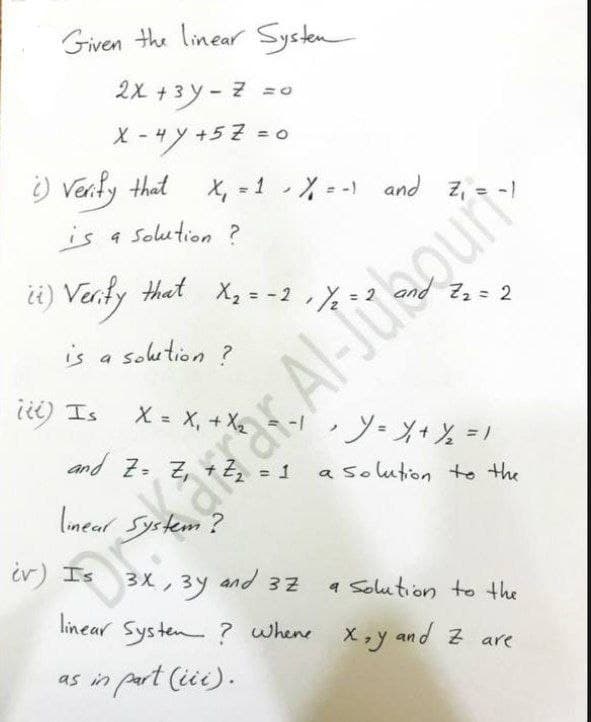 Given the linear System
2x + 3y - z = 0
x - 4y + 5z = 0
i) Verify that x₁ = 1, y₁ = -1 and z₁ = -1
is a solution ?
ii) Verify that x₂ = -2, y₂ = 2 and z₂ = 2
is a solution ?
iii) Is x = x₁ + x₂ = -1, y = y₁ + y₂ = 1
and z = z₁ + z₂ = 1 a solution to the
linear system ?
iv) Is 3x, 3y and 3z a solution to the
linear system ? where x, y and z are
as in part (iii).
Dr. Karrar Al-Jubouri